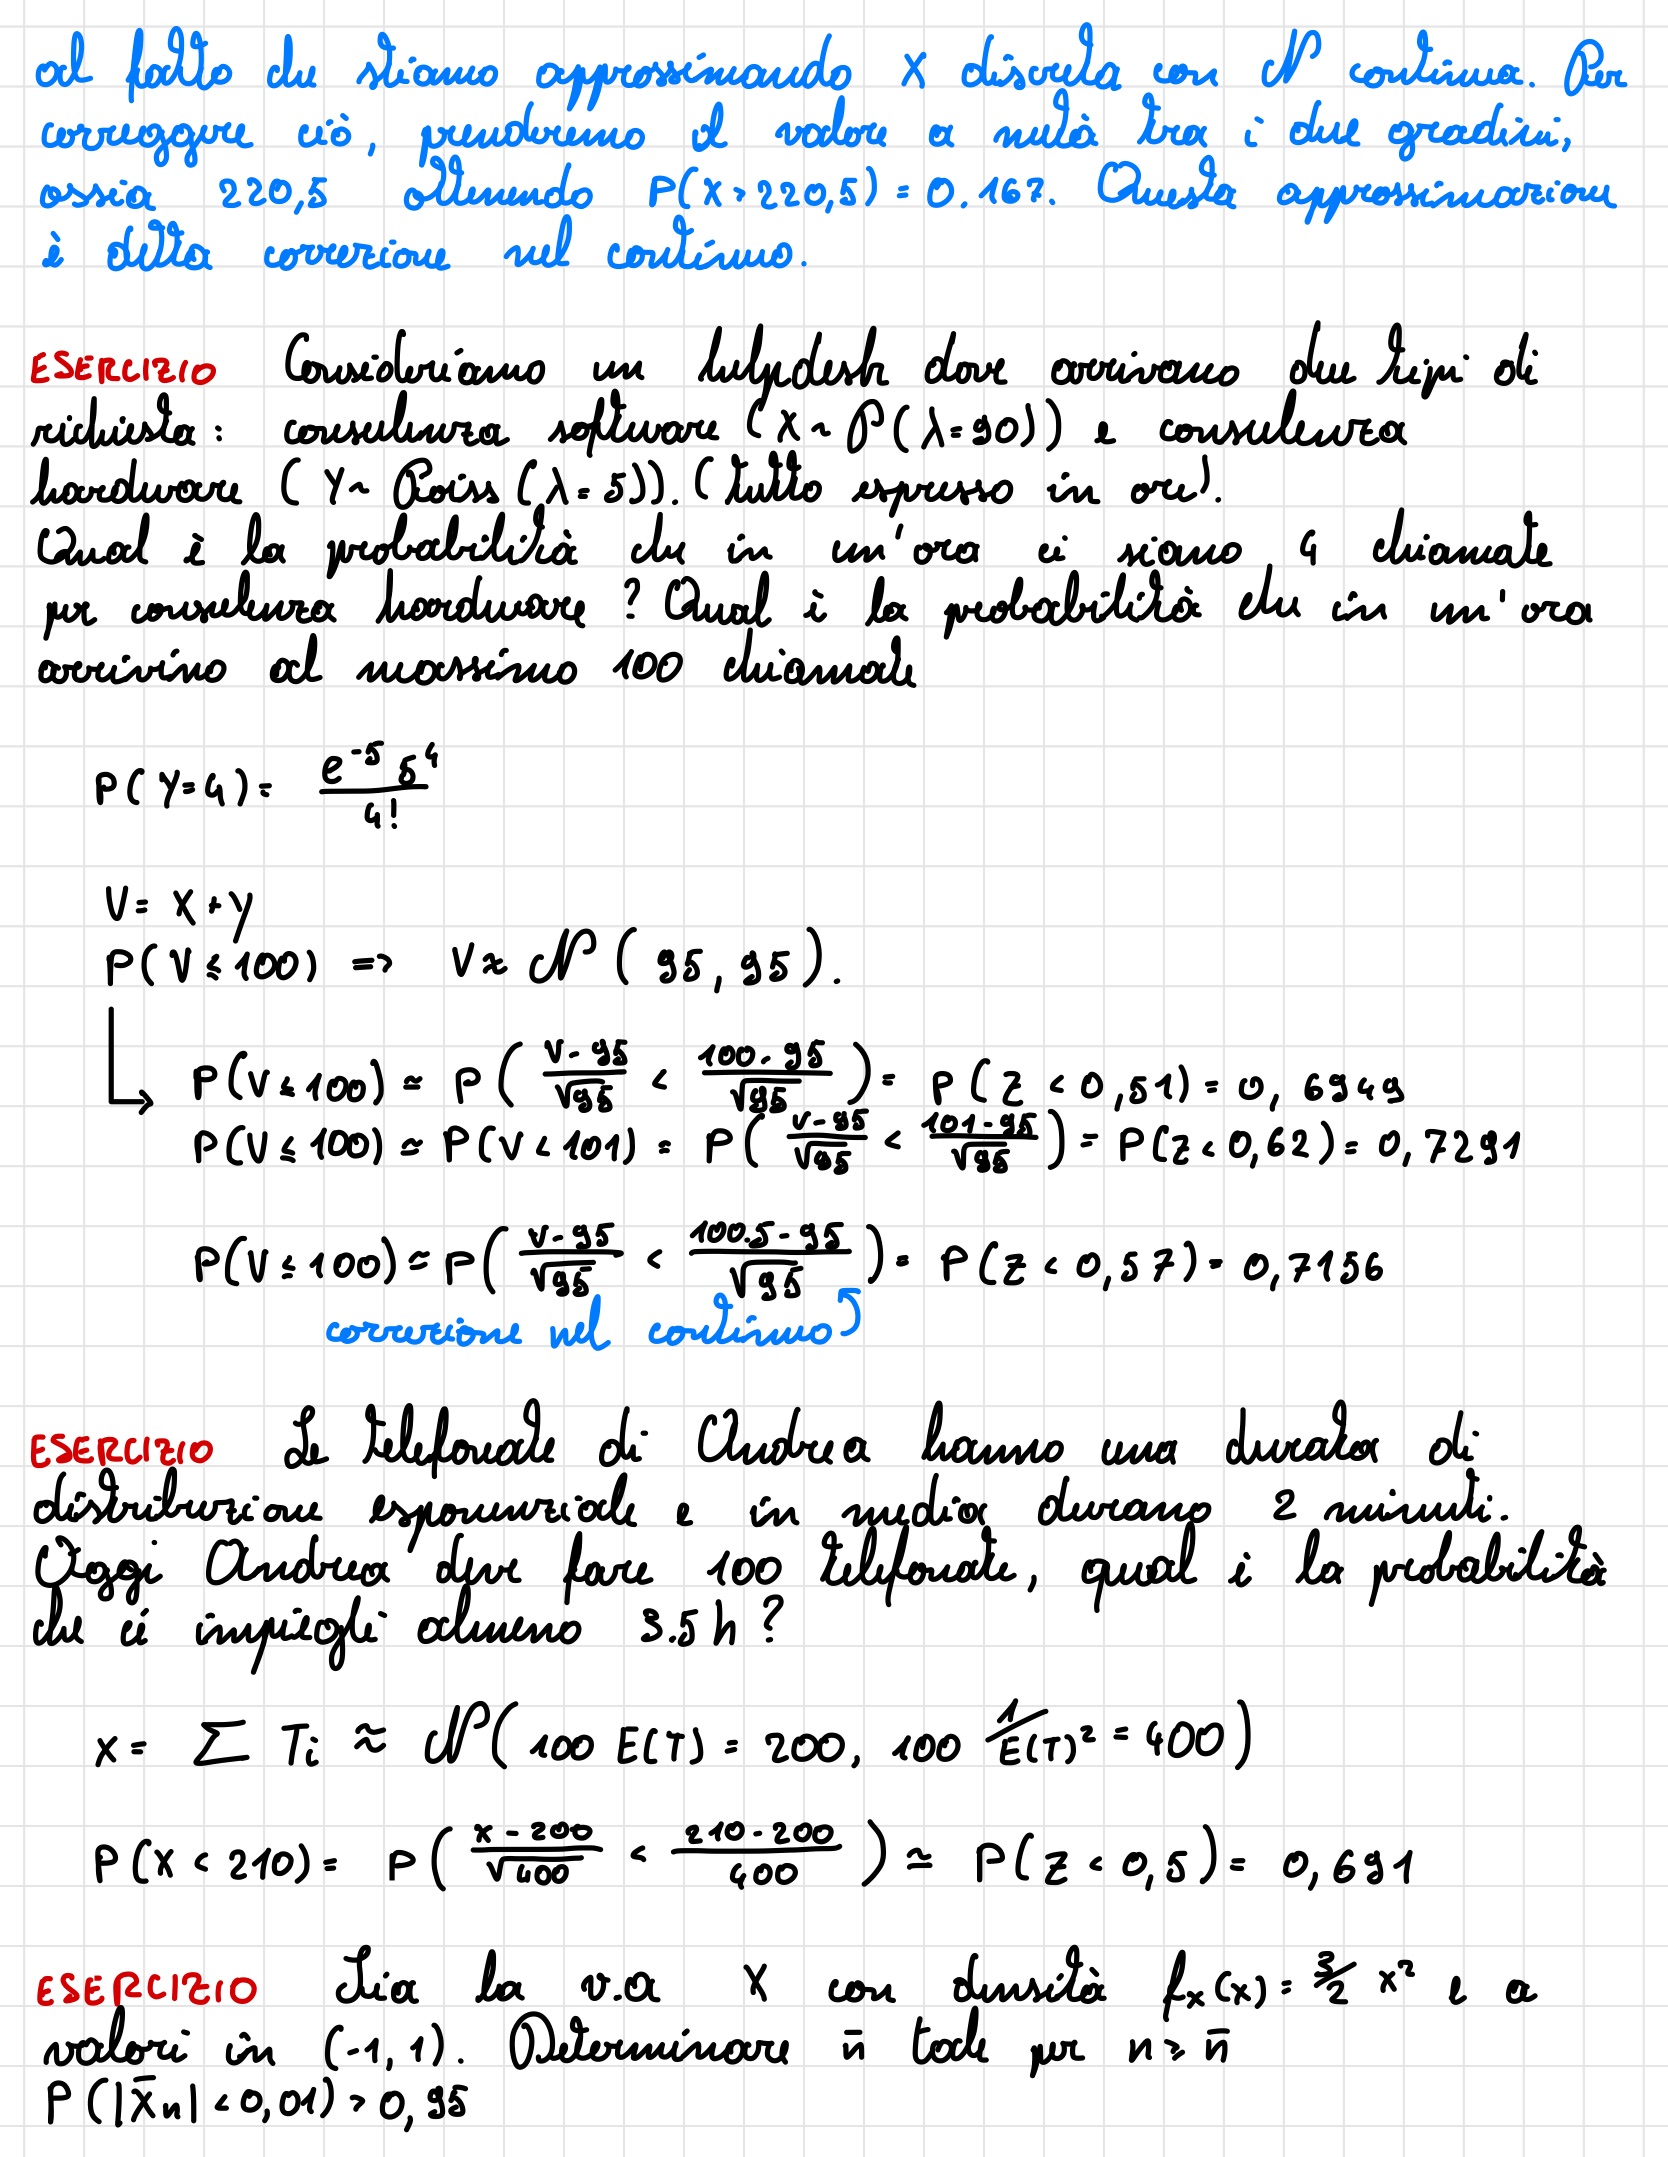 al fatto che stiamo approssimando X discreta con N continua. Per
correggere ciò, prenderemo il valore a metà tra i due gradini,
ossia 220,5 ottenendo P(X>220,5) = 0.167. Questa approssimazione
è detta correzione nel continuo.
ESERCIZIO Consideriamo un helpdesk dove arrivano due tipi di
richiesta: consulenza software (X ~ P(λ=90)) e consulenza
hardware (Y ~ Poiss (λ=5)). (tutto espresso in ore).
Qual è la probabilità che in un'ora ci siano 4 chiamate
per consulenza hardware? Qual è la probabilità che in un'ora
arrivino al massimo 100 chiamate
P(Y=4) = e^-5 5^4 / 4!
V = X + Y
P(V ≤ 100) => V ≈ N(95, 95).
P(V ≤ 100) ≃ P( (V-95)/√95 < (100-95)/√95 ) = P(Z < 0,51) = 0,6949
P(V ≤ 100) ≃ P(V < 101) = P( (V-95)/√95 < (101-95)/√95 ) = P(Z < 0,62) = 0,7291
P(V ≤ 100) ≃ P( (V-95)/√95 < (100.5-95)/√95 ) = P(Z < 0,57) = 0,7156
correzione nel continuo
ESERCIZIO Le telefonate di Andrea hanno una durata di
distribuzione esponenziale e in media durano 2 minuti.
Oggi Andrea deve fare 100 telefonate, qual è la probabilità
che ci impieghi almeno 3.5h?
X = Σ Ti ≈ N(100 E(T) = 200, 100 1/E(T)² = 400)
P(X < 210) = P( (X-200)/√400 < (210-200)/400 ) ≃ P(Z < 0,5) = 0,691
ESERCIZIO Sia la v.a X con densità fx(x) = 3/2 x² e a
valori in (-1,1). Determinare n̄ tale per n ≥ n̄
P(|X̄n| < 0,01) > 0,95